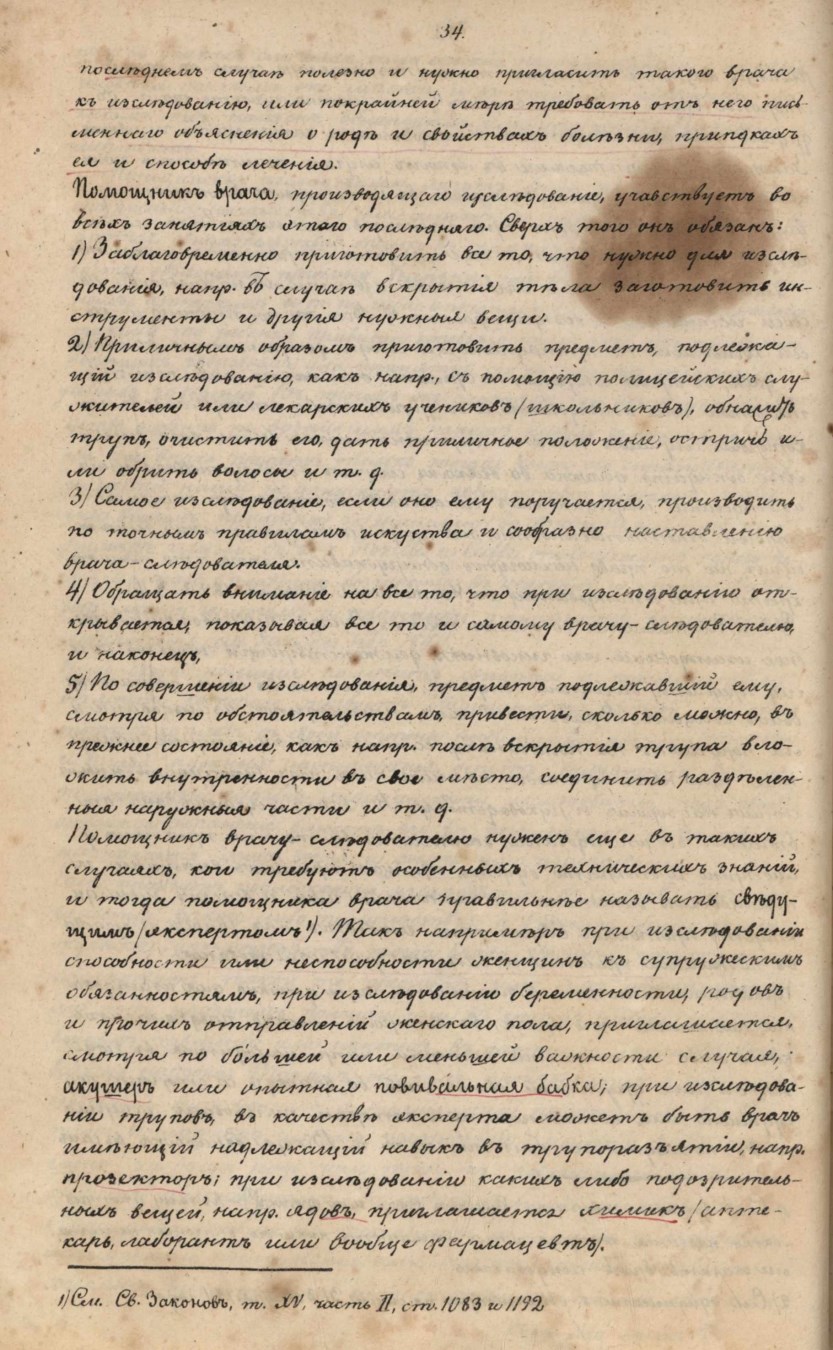 34.
послѣднемъ случаѣ полезно и нужно пригласить такого врача
къ изслѣдованію, или покрайней мѣрѣ требовать отъ него пись
меннаго объясненія о родѣ и свойствахъ болѣзни, припадкахъ
ея и способѣ леченія.
Помощникъ врача, производящаго изслѣдованіе, учавствуетъ во
всѣхъ занятіяхъ этаго послѣдняго. Сверхъ того онъ обязанъ:
1) Заблаговременно приготовить все то, что нужно для изслѣ-
дованія, напр. въ случаѣ вскрытія тѣла заготовить ин-
струменты и другія нужныя вещи.
2) Приличнымъ образомъ приготовить предметъ, подлежа-
щій изслѣдованію, какъ напр., съ помощію полицейскихъ слу-
жителей или лекарскихъ учениковъ (школьниковъ), обнажить
трупъ, очистить его, дать приличное положеніе, остричь и-
ли обрить волосы и т. д.
3) Самое изслѣдованіе, если оно ему поручается, производить
по точнымъ правиламъ искуства и сообразно наставленію
врача-слѣдователя.
4) Обращать вниманіе на все то, что при изслѣдованію от-
крывается, показывая все то и самому врачу-слѣдователю,
и наконецъ,
5) По совершеніи изслѣдованія, предметъ подлежавшій ему,
смотря по обстоятельствамъ, привести, сколько можно, въ
прежнее состояніе, какъ напр. послѣ вскрытія трупа вло-
жить внутренности въ свое мѣсто, соединить раздѣлен-
ныя наружныя части и т. д.
Помощникъ врачу-слѣдователю нуженъ еще въ такихъ
случаяхъ, кои требуютъ особенныхъ техническихъ знаній,
и тогда помощника врача правильнѣе называть свѣду-
щимъ (экспертомъ ¹). Такъ напримѣръ при изслѣдованіи
способности или неспособности женщинъ къ супружескимъ
обязанностямъ, при изслѣдованію беременности, родовъ
и прочихъ отправленій женскаго пола, приглашается,
смотря по большей или меньшей важности случая,
акушеръ или опытная повивальная бабка; при изслѣдова-
ніи труповъ, въ качествѣ эксперта можетъ быть врачъ
имѣющій надлежащій навыкъ въ трупоразъятіи, напр.
прозекторъ; при изслѣдованіи какихъ либо подозритель-
ныхъ вещей, напр. ядовъ, приглашается химикъ (апте-
карь, лаборантъ или вообще фармацевтъ).
¹) См. Св. Законовъ, т. XV, часть II, ст. 1083 и 1192